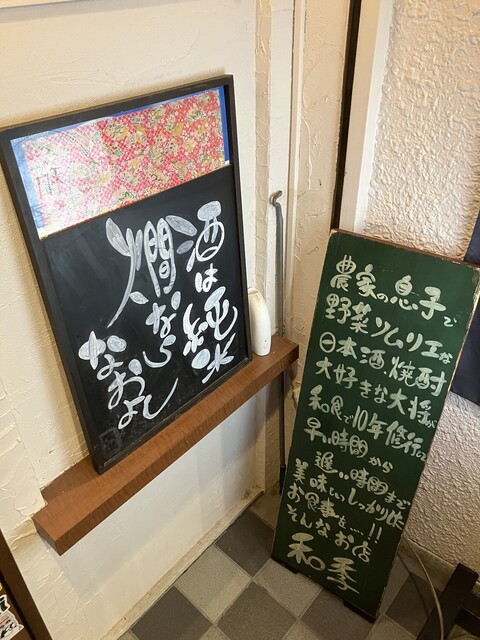 酒は純米
燗なら
なおよし
農家の息子で
野菜ソムリエな
日本酒、焼酎
大好きな大将が
和食で10年修行して
早い時間から
遅い時間まで
美味しいしっかりした
お食事を…!!
そんなお店
和季